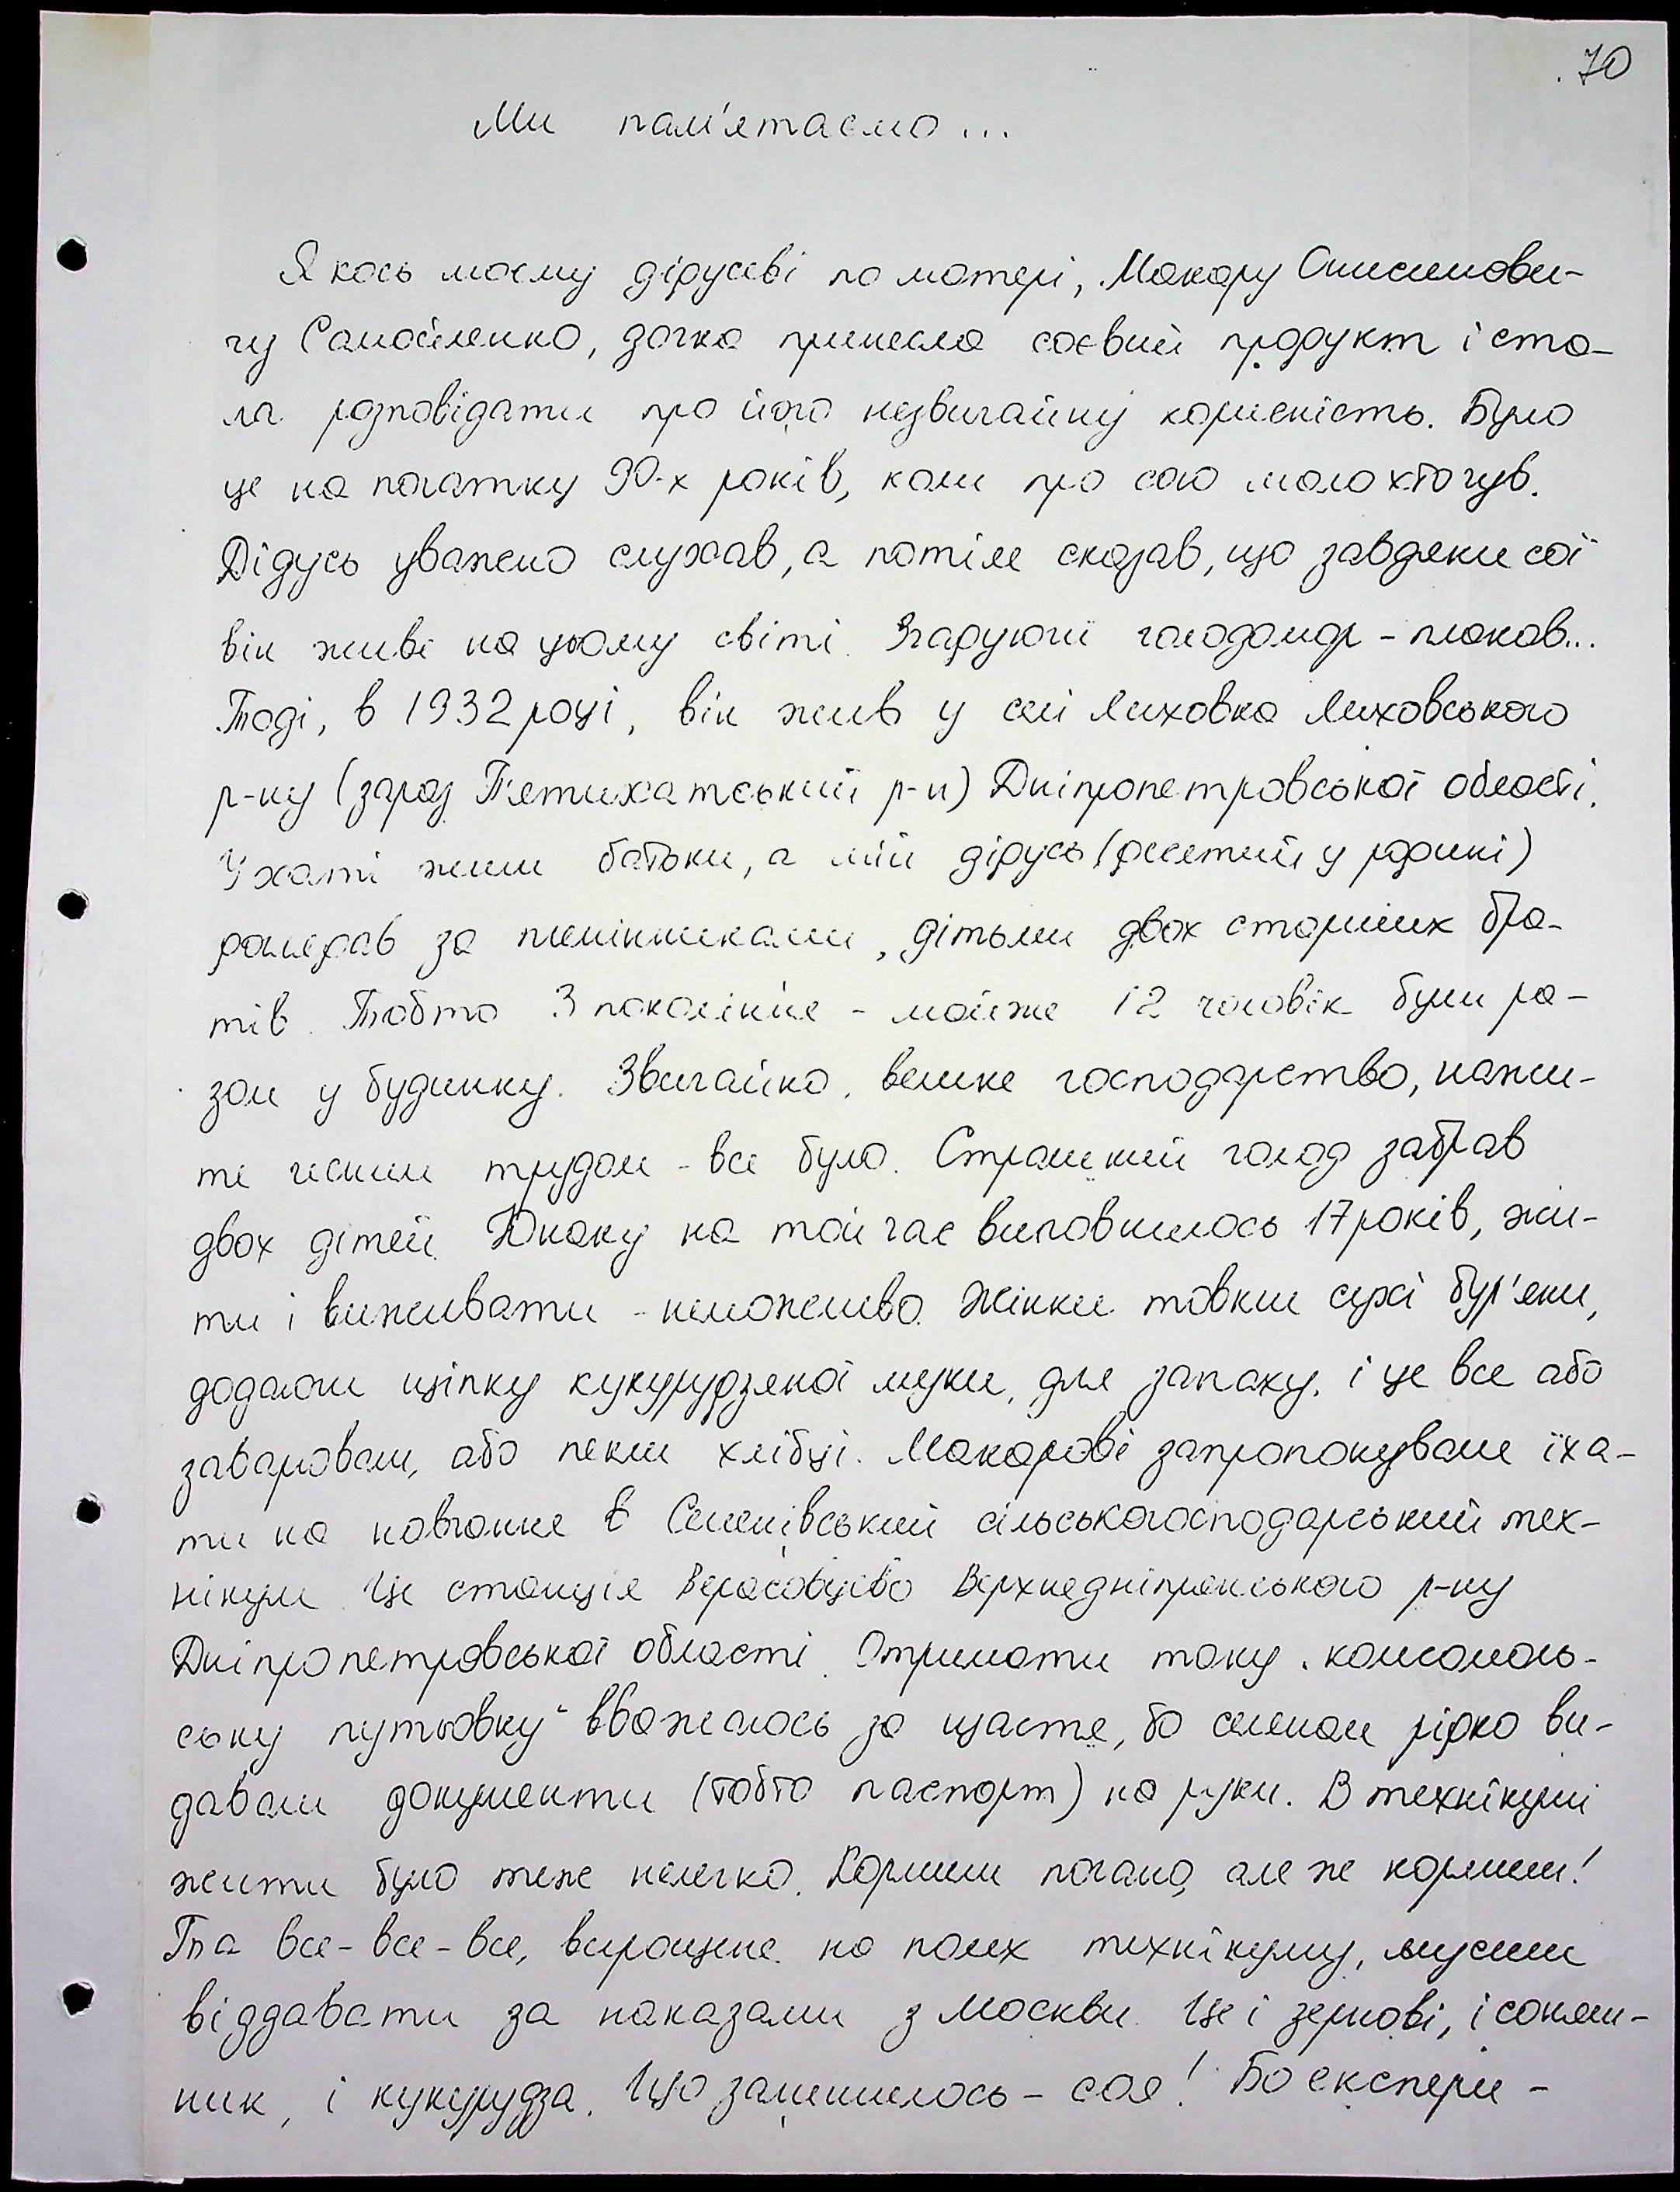 70
Ми пам'ятаємо...
Якось моєму дідусеві по матері, Макару Онисимови-
чу Самойленко, дочка принесла соєвий продукт і ста-
ла розповідати про його незвичайну корисність. Було
це на початку 90-х років, коли про сою мало хто чув.
Дідусь уважно слухав, а потім сказав, що завдяки сої
він живе на цьому світі. Згадуючи голодомор - плакав...
Тоді, в 1932 році, він жив у селі Лиховка Лиховського
р-ну (зараз П'ятихатський р-н) Дніпропетровської області.
У хаті жили батьки, а мій дідусь (десятий у родині)
доглядав за племінниками, дітьми двох старших бра-
тів. Тобто 3 покоління - майже 12 чоловік були ра-
зом у будинку. Звичайно, велике господарство, нажи-
те чесним трудом - все було. Страшний голод забрав
двох дітей. Юнаку на той час виповнилось 17 років, жи-
ти і виживати - неможливо. Жінки товкли сухі бур'яни,
додавали щіпку кукурудзяної муки, для запаху, і це все або
заварювали, або пекли хлібці. Макарові запропонували їха-
ти на навчання в Семенівський сільськогосподарський тех-
нікум. Це станція Верховцево Верхнедніпровського р-ну
Дніпропетровської області. Отримати таку "комсомоль-
ську путьовку" вважалось за щастя, бо селянам рідко ви-
давали документи (тобто паспорт) на руки. В технікумі
жити було теж нелегко. Кормили погано, але ж кормили!
Та все-все-все, вирощене на полях технікуму, мусили
віддавати за наказами з Москви. Це і зернові, і соняш-
ник, і кукурудза. Що залишилось - соя! Бо експери-